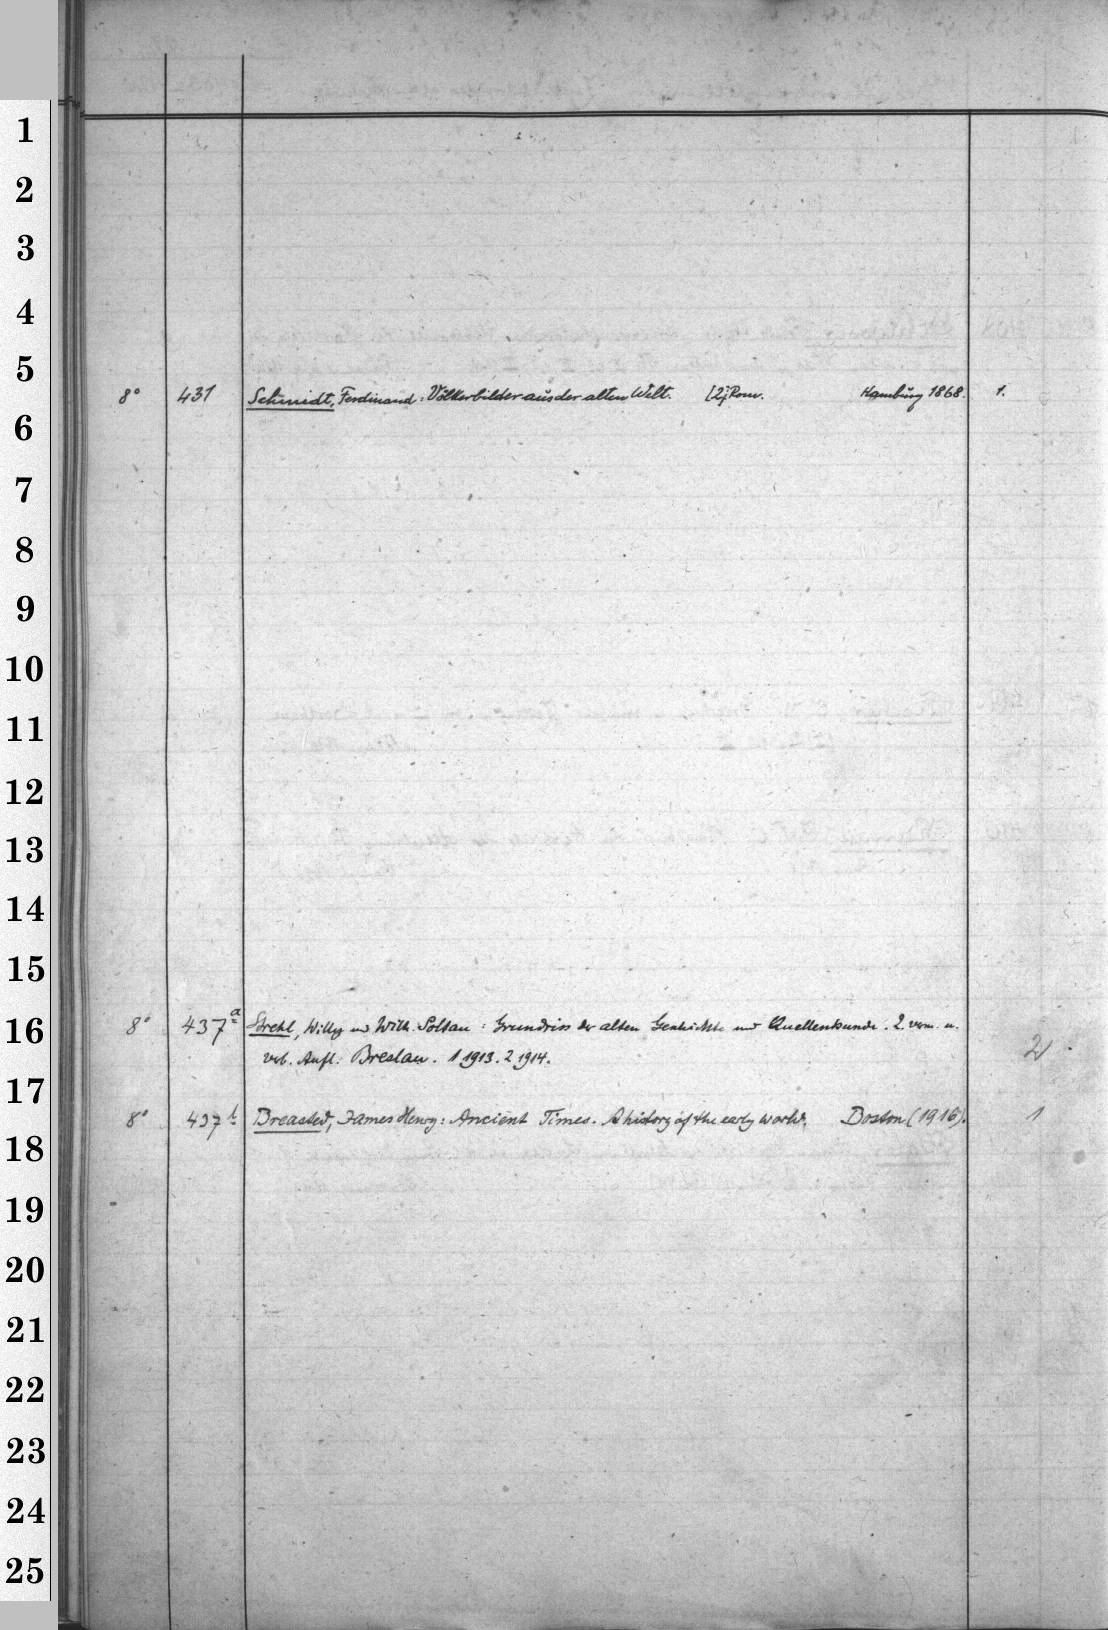 1
2
3
4
5
8° 431 Schmidt, Ferdinand: Völkerbilder aus der alten Welt. [2] Rom. Hamburg 1868. 1.
6
7
8
9
10
11
12
13
14
15
16
8° 437a Strehl, Willy und Wilh. Soltau: Grundriss der alten Geschichte und Quellenkunde. 2. verm. u.
verb. Aufl. Breslau. 1 1913. 2 1914. 2
17
8° 437b Breasted, James Henry: Ancient Times. A history of the early world. Boston (1916). 1
18
19
20
21
22
23
24
25